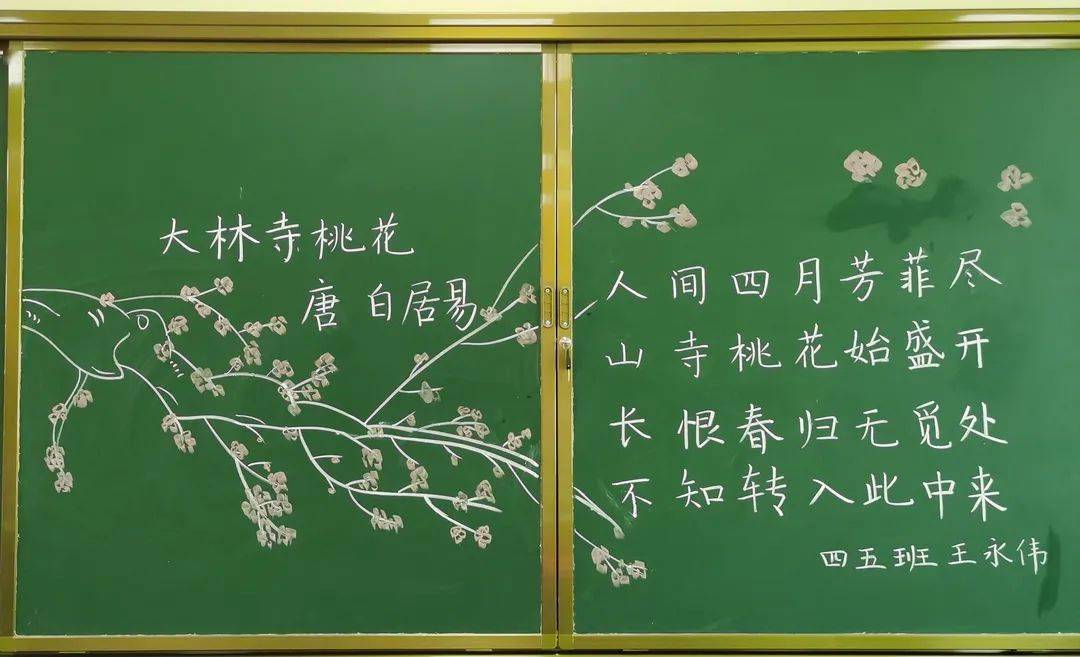 大林寺桃花
唐 白居易
人间四月芳菲尽
山寺桃花始盛开
长恨春归无觅处
不知转入此中来
四五班王永伟